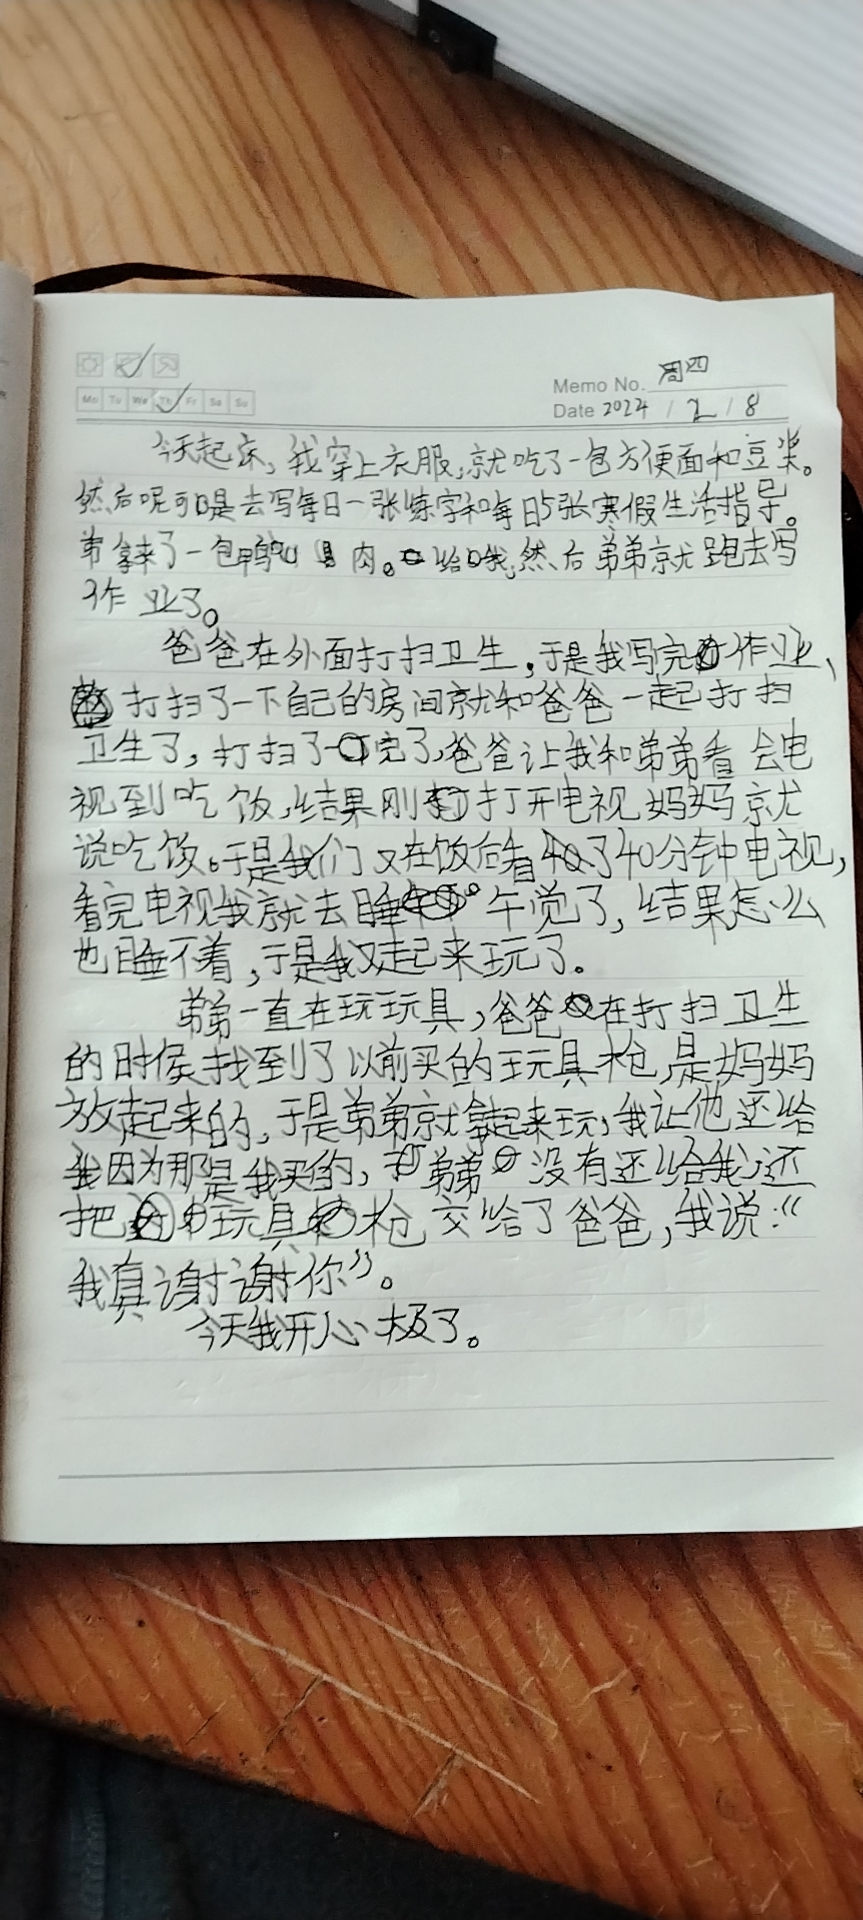 Mo Tu We Th Fr Sa Su
Memo No. 周四
Date 2024 / 2 / 8
今天起床，我穿上衣服，就吃了一包方便面和豆浆。
然后呢可是去写每日一张练字和每日5张寒假生活指导。
弟拿来了一包鸭 肉。给我，然后弟弟就跑去写
作业了。
爸爸在外面打扫卫生，于是我写完作业、
打扫了一下自己的房间就和爸爸一起打扫
卫生了，打扫了完了，爸爸让我和弟弟看会电
视到吃饭，结果刚打开电视妈妈就
说吃饭。于是我们又在饭后看了40分钟电视，
看完电视我就去睡午觉了，结果怎么
也睡不着，于是我又起来玩了。
弟弟一直在玩玩具，爸爸在打扫卫生
的时侯找到了以前买的玩具枪，是妈妈
放起来的，于是弟弟就拿起来玩，我让他还给
我因为那是我买的，弟弟没有还给我，还
把玩具枪交给了爸爸，我说：“
我真谢谢你”。
今天我开心极了。